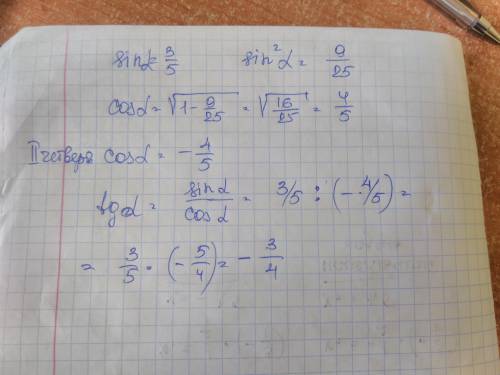 sinα = 3/5 sin²α = 9/25
cosα = √(1 - 9/25) = √(16/25) = 4/5
II четверть cosα = - 4/5
tgα = sinα/cosα = 3/5 : (- 4/5) =
= 3/5 · (- 5/4) = - 3/4